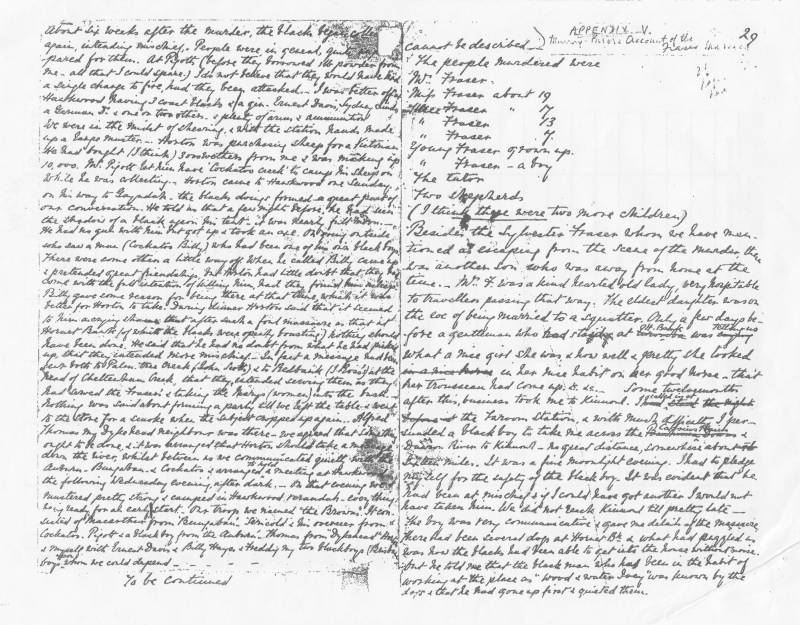 About six weeks after the murder, the blacks began to collect
again, intending mischief. People were in general, quite pre-
pared for them. At Pigott's (before they borrowed 1 lb powder from
me - all that I could spare.) I do not believe that they would have had
a single charge to fire, had they been attacked. - I was better off at
Hawkwood having 3 coast blacks & a gin. Ernest Davis, Sydney
a German F. & one or two others. & plenty of arms & ammunition
We were in the midst of shearing, & with the station hands made
up a large muster. - Horton was purchasing sheep for a Victorian
He had bought (I think) 3000 wethers from me & was making up
10,000. Mr. Pigott let him have Cockatoo creek to camp his sheep on
while he was collecting. Horton came to Hawkwood one Sunday
on his way to Gayndah. The blacks doings formed a great part of
our conversation. He told us that a few nights before, he had seen
the shadow of a black upon his tent - it was nearly full moon.
He had no gun with him but got up & took an axe. On going outside
who saw a man (Cockatoo Billy,) who had been one of his own black boys
There were some others a little way off. When he called Billy came up
& pretended great friendship. But Horton had little doubt that they had
come with the full intention of killing him, had they found him asleep
Billy gave some reason for being there at that time, which it was
better for Horton to take. During dinner Horton said that it seemed
to him a crying shame that after such a foul massacre as that at
Hornet Bank (of which the blacks were openly boasting) nothing should
have been done. He said that he had no doubt from what he had picked
up that they intended more mischief. - In fact a message had been
sent both to Palm Tree Creek (John Scott) & to Redbank (J. Ross) at the
head of Cheltenham Creek, that they intended serving them as they
had served the Frasers & taking the Marys (women) into the bush. -
Nothing was said about forming a party till we left the table & went
to the store for a smoke when the subject cropped up again. Alfred
Thomas my Dykehead neighbour was there - we agreed that something
ought to be done, & it was arranged that Horton should take a message
down the river, whilst between us we communicated quietly with the
Auburn - Bungaban - & Cockatoo & arranged to hold a meeting at Hawkwood
the following Wednesday evening, after dark. - On that evening we
mustered pretty strong & camped in Hawkwood verandah. Every thing
being ready for an early start. Our troop we named "the Browns." It con-
sisted of Macarthur from "Bungaban". Serisold & his overseer from
Cockatoo. Pigott & a black boy from the Auburn. Thomas from Dykehead.
& myself with Ernest Davis & Billy Hayes & Freddy my two blackboys (Besides
boys whom we could depend -
To be continued
APPENDIX. V.
29
Murray-Prior's Account of the
Fraser Massacre
cannot be described -
The people murdered were
Mrs. Fraser.
Miss Fraser about 19
Miss Fraser " 17
" Fraser 13
" Fraser 7.
Young Fraser grown up.
" Fraser - a boy
The tutor
Two shepherds
(I think there were two more children)
Besides the Sylvester Fraser whom we have men-
tioned as escaping from the scene of the murder, there
was another son who was away from home at the
time. - Mrs. F. was a kind hearted old lady, very hospitable
to travellers passing that way. The eldest daughter was on
the eve of being married to a squatter. Only a few days be-
fore a gentleman who had stayed at Ht. Bank was telling us
what a nice girl she was, & how well & pretty she looked
in her nice habit on her good horse - that
her trousseau had come up. &c. &c. - Some twelvemonths
after this, business took me to Kinnoul. I
the Taroom Station, & with much difficulty, I per-
suaded a black boy to take me across the
Dawson River to Kinnoul - no great distance, somewhere about
sixteen miles. It was a fine moonlight evening. I had to pledge
myself for the safety of the black boy. It was evident that he
had been at mischief & if I could have got another I would not
have taken him. We did not reach Kinnoul till pretty late -
The boy was very communicative & gave me details of the massacre
There had been several dogs at Hornet Bk. & what had puzzled us
was how the blacks had been able to get into the house without noise.
but he told me that the black man who had been in the habit of
working at the place as "wood & water Joey" was known by the
dogs & that he had gone up first & quieted them.